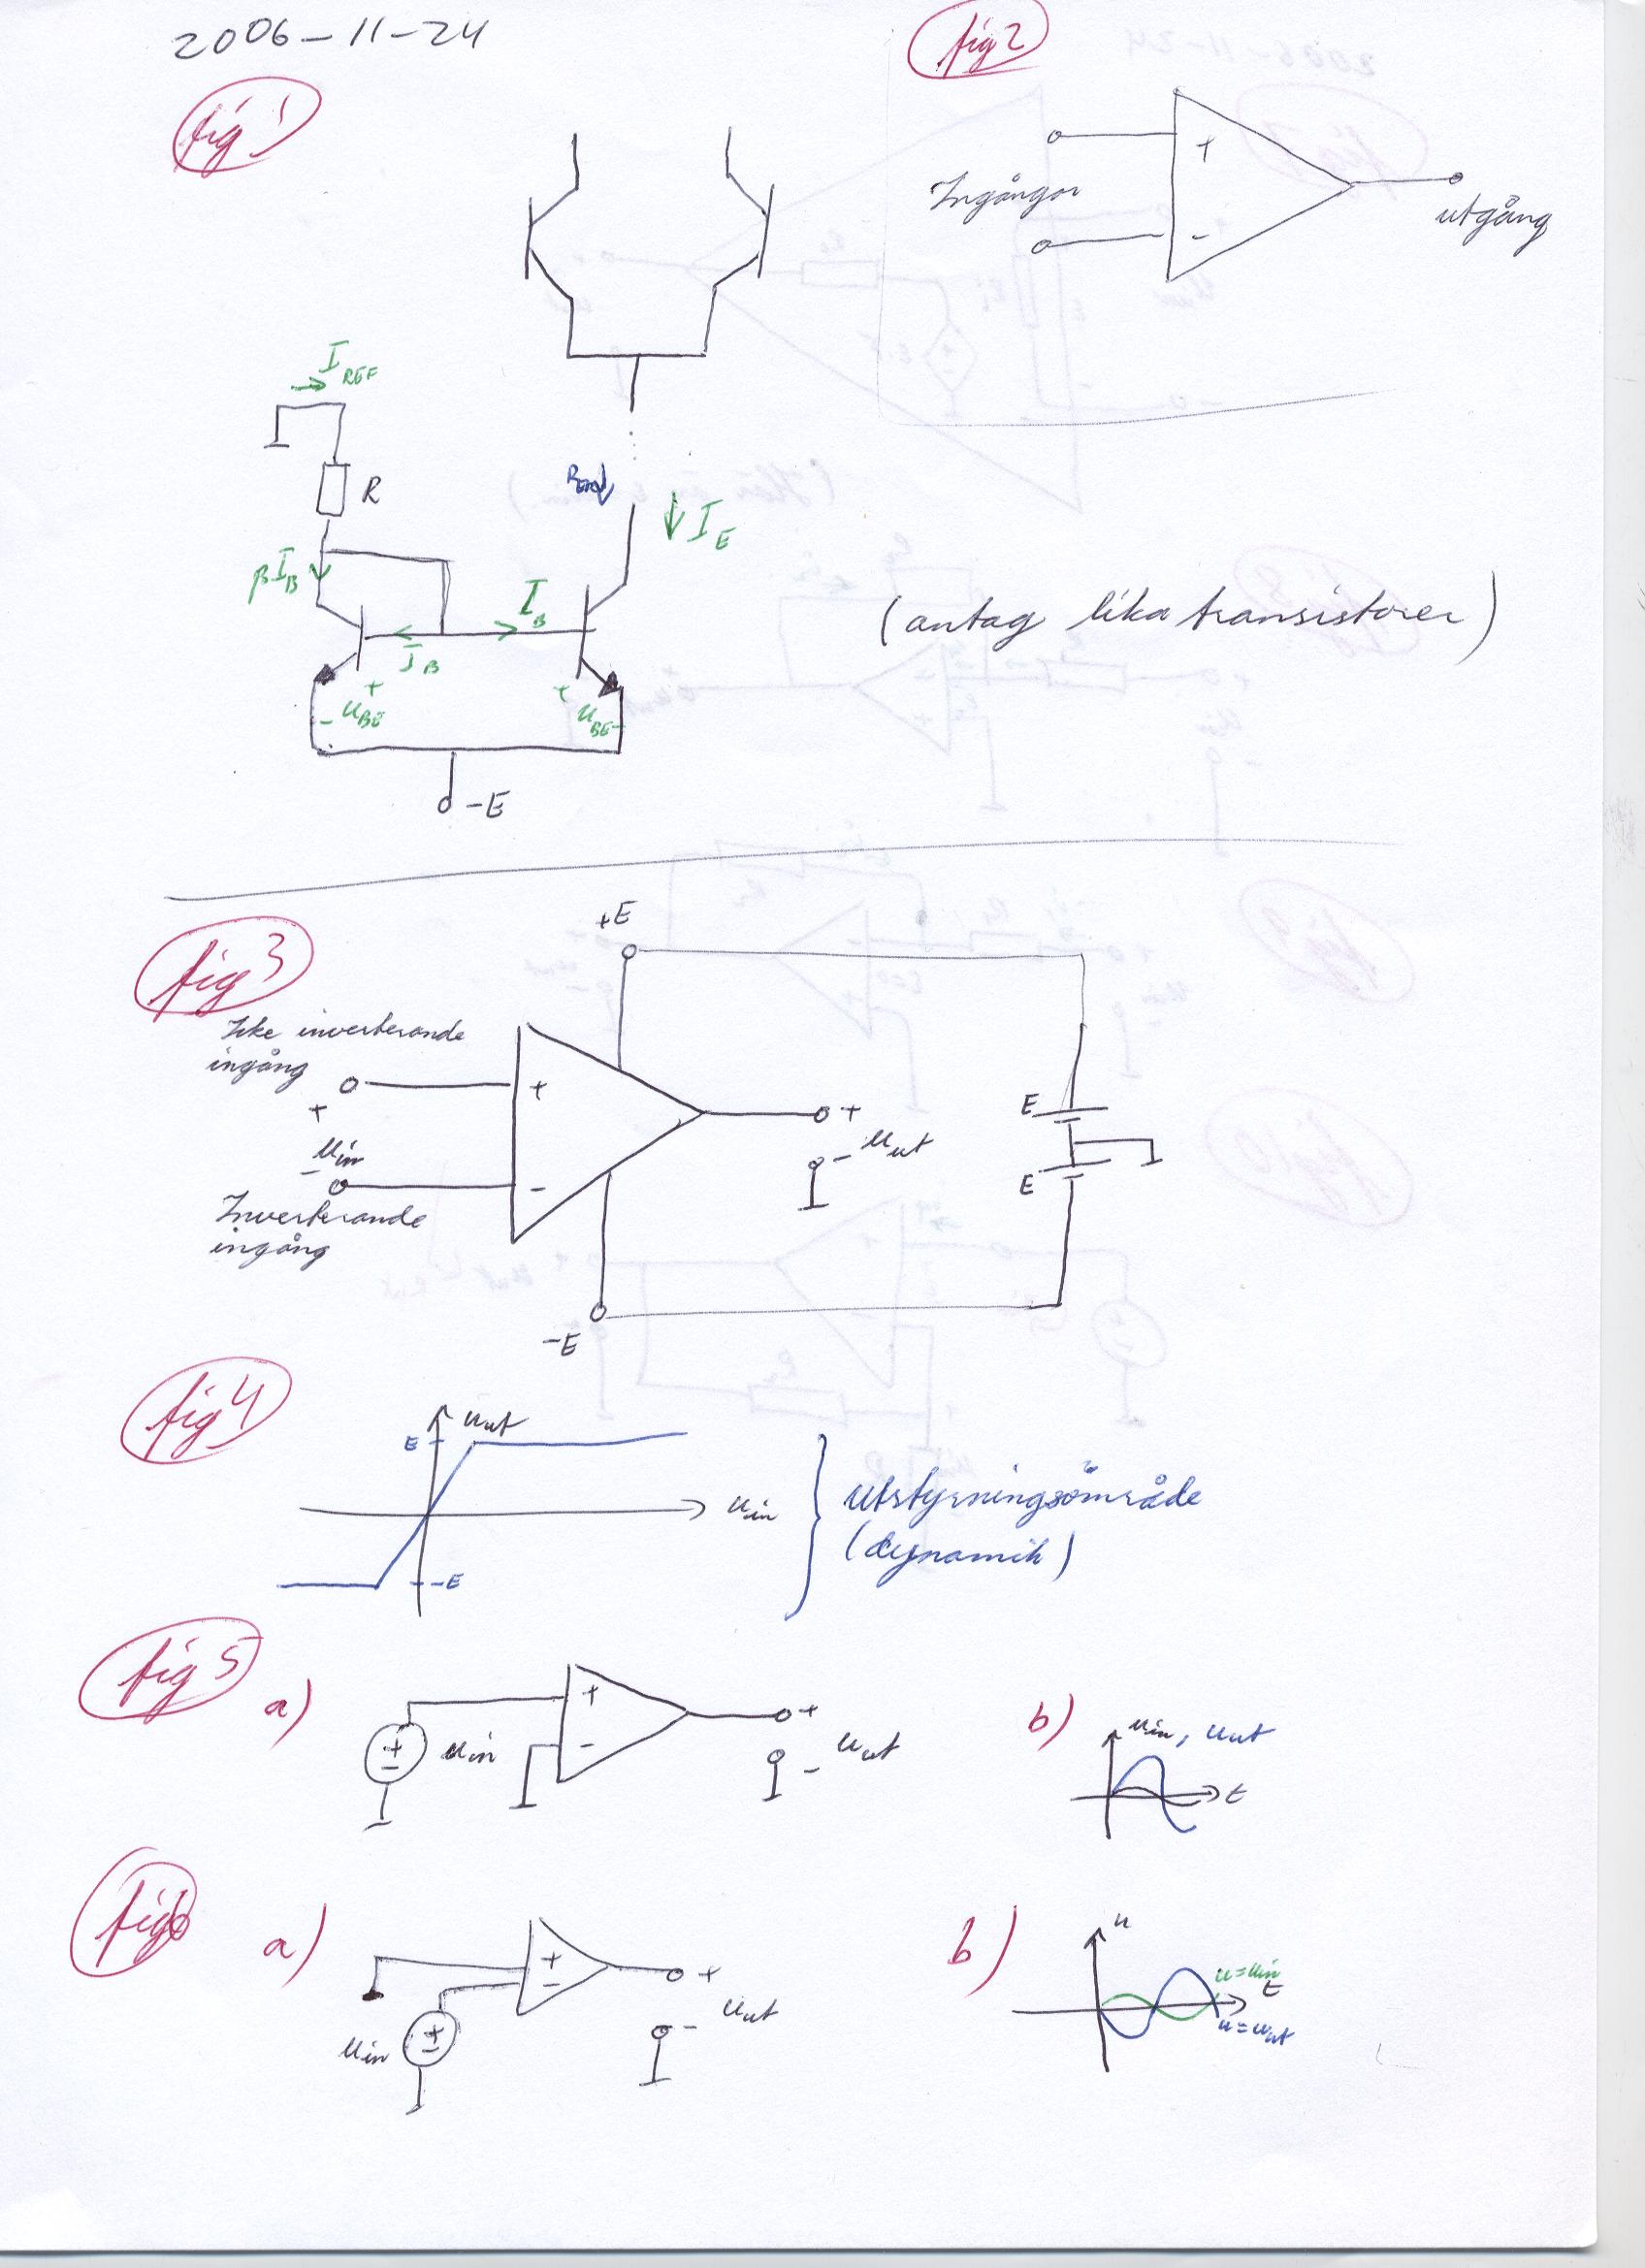 2006-11-24
fig 1
I REF
R
βI_B
I_B
I_B
I_E
+
u_BE
-
+
u_BE
-
-E
(antag lika transistorer)
fig 2
Ingångar
+
-
utgång
fig 3
+E
Icke inverterande
ingång
+
u_in
-
Inverterande
ingång
+
-
+
- u_ut
E
E
-E
fig 4
u_ut
E
u_in
-E
utstyrningsområde
(dynamik)
fig 5
a)
+
-
u_in
+
-
+
- u_ut
b)
u_in, u_ut
t
fig 6
a)
+
-
u_in
+
-
+
- u_ut
b)
u
u=u_in
t
u=u_ut